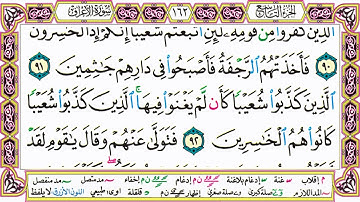 الجزء التاسع ١٦٢ سورة الأعراف
الَّذِينَ كَفَرُوا مِن قَوْمِهِ لَئِنِ اتَّبَعْتُمْ شُعَيْبًا إِنَّكُمْ إِذًا لَّخَاسِرُونَ
٩٠ فَأَخَذَتْهُمُ الرَّجْفَةُ فَأَصْبَحُوا فِي دَارِهِمْ جَاثِمِينَ ٩١
الَّذِينَ كَذَّبُوا شُعَيْبًا كَأَن لَّمْ يَغْنَوْا فِيهَا ۚ الَّذِينَ كَذَّبُوا شُعَيْبًا
كَانُوا هُمُ الْخَاسِرِينَ ٩٢ فَتَوَلَّىٰ عَنْهُمْ وَقَالَ يَا قَوْمِ لَقَدْ